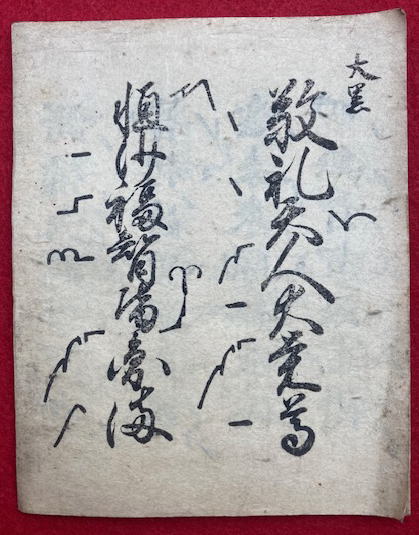 大黒
敬礼天人大覚尊
恒沙福智皆圓満